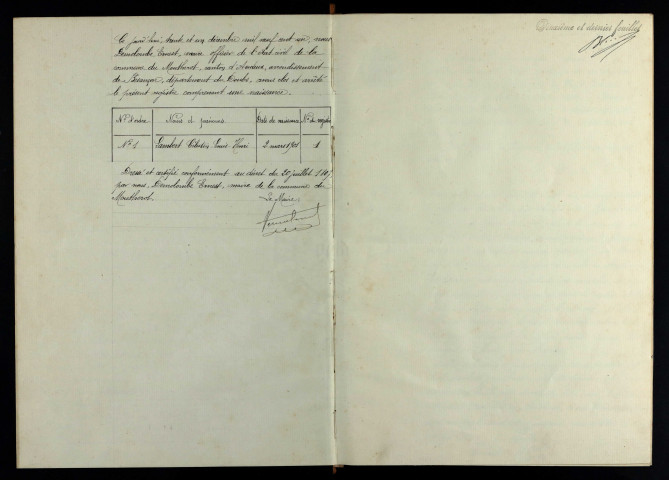 Ce jourd'hui, trente et un décembre mil neuf cent un, nous
Ernest, maire officier de l'état civil de la
commune de Montherot, canton d'Audeux, arrondissement
de Besançon, département du Doubs, avons clos et arrêté
le présent registre comprenant une naissance.
Nos d'ordre Noms et prénoms Date de naissance Nos du registre
No 1 Lambert Louis Henri 2 mars 1901 1
Dressé et certifié conformément au décret du 20 juillet 1807
par nous, Ernest, maire de la commune de
Montherot.
Le Maire,
Deuxième et dernier feuillet